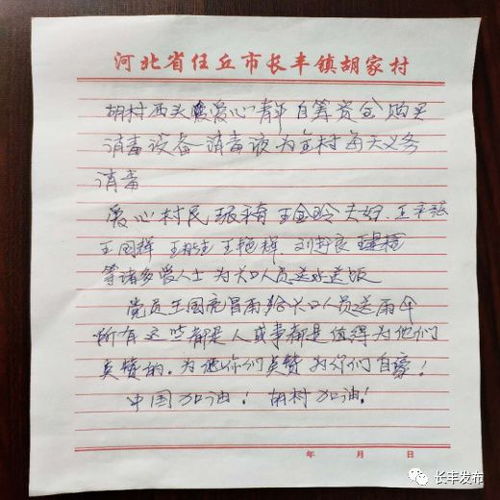 河北省任丘市长丰镇胡家村
胡村西头爱心青年自筹资金购买
消毒设备 消毒液为全村每天义务
消毒
爱心村民 王金玲夫妇
王国辉 王艳辉
等诸多爱人士为卡口人员送水送饭
党员王国亮冒雨给卡口人员送雨伞
所有这些都是人或事都是值得为他们
点赞的.为他你们点赞 为你们自豪!
中国加油! 胡村加油!
年 月 日
长丰发布